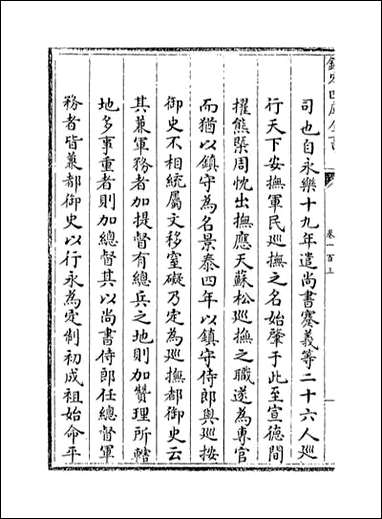 欽定四庫全書
卷一百上
司也自永樂十九年遣尚書蹇義等二十六人巡
行天下安撫軍民巡撫之名始肇于此至宣德間
擢熊槩周忱出撫應天蘇松巡撫之職遂為專官
而猶以鎮守為名景泰四年以鎮守侍郎與巡按
御史不相統屬文移窒礙乃定為巡撫都御史云
其兼軍務者加提督有總兵之地則加贊理所轄
地多事重者則加總督其以尚書侍郎任總督軍
務者皆兼都御史以行永為定制初成祖始命平